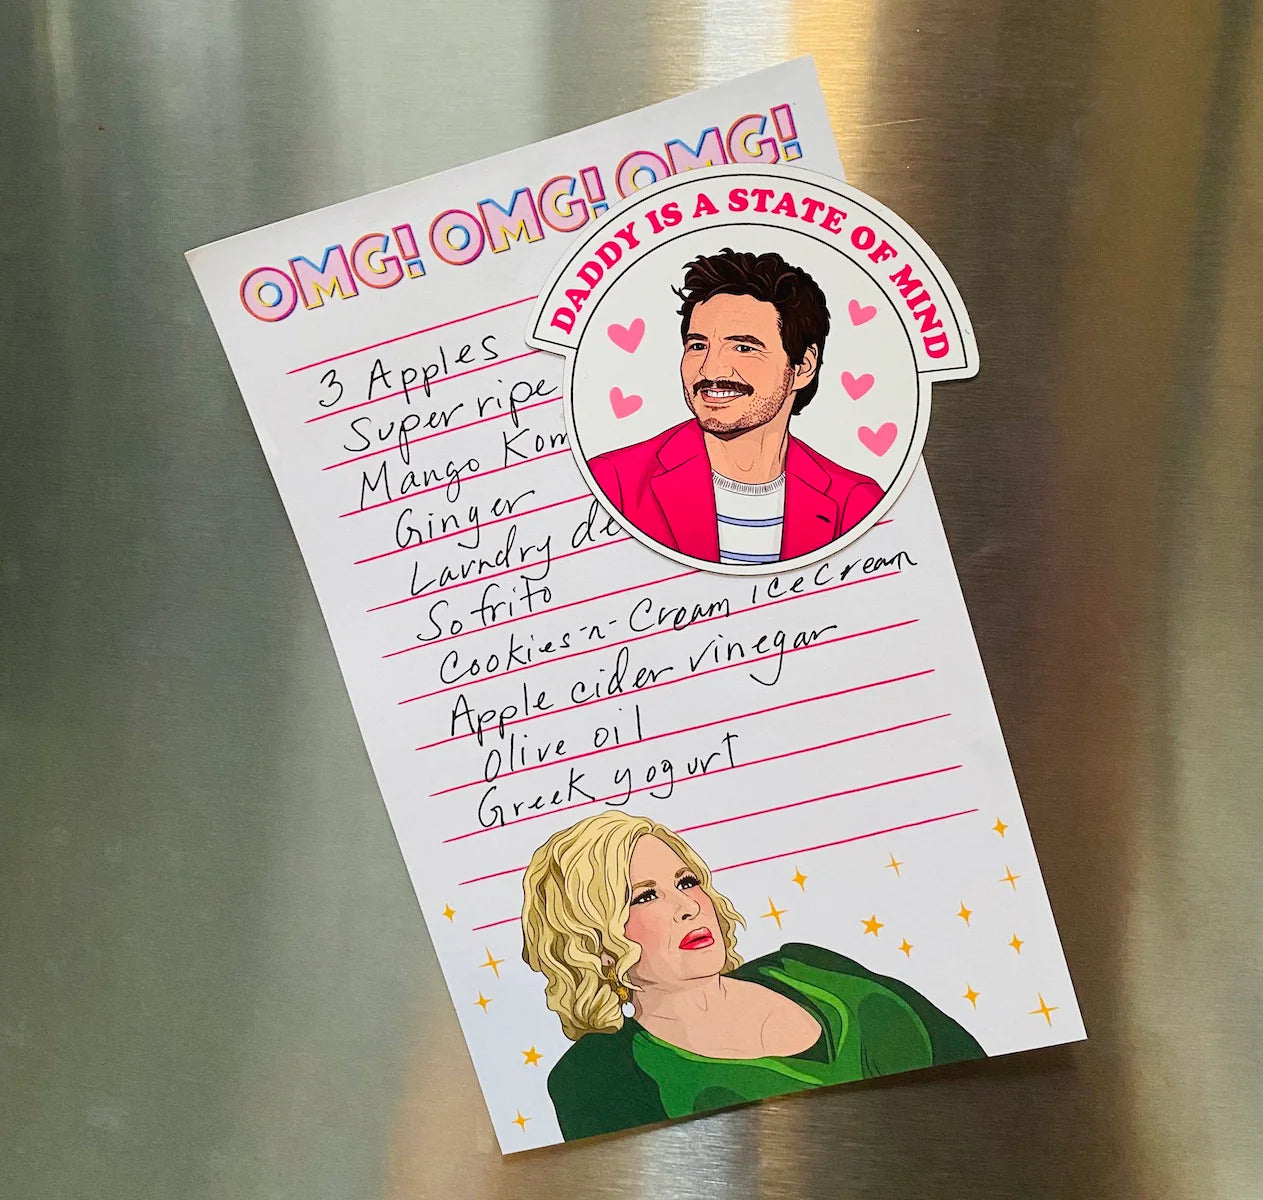 OMG! OMG! OMG!
DADDY IS A STATE OF MIND
3 Apples
Super ripe
Mango Kom
Ginger
Laundry de
Sofrito
Cookies-n-Cream ice cream
Apple cider vinegar
Olive oil
Greek yogurt